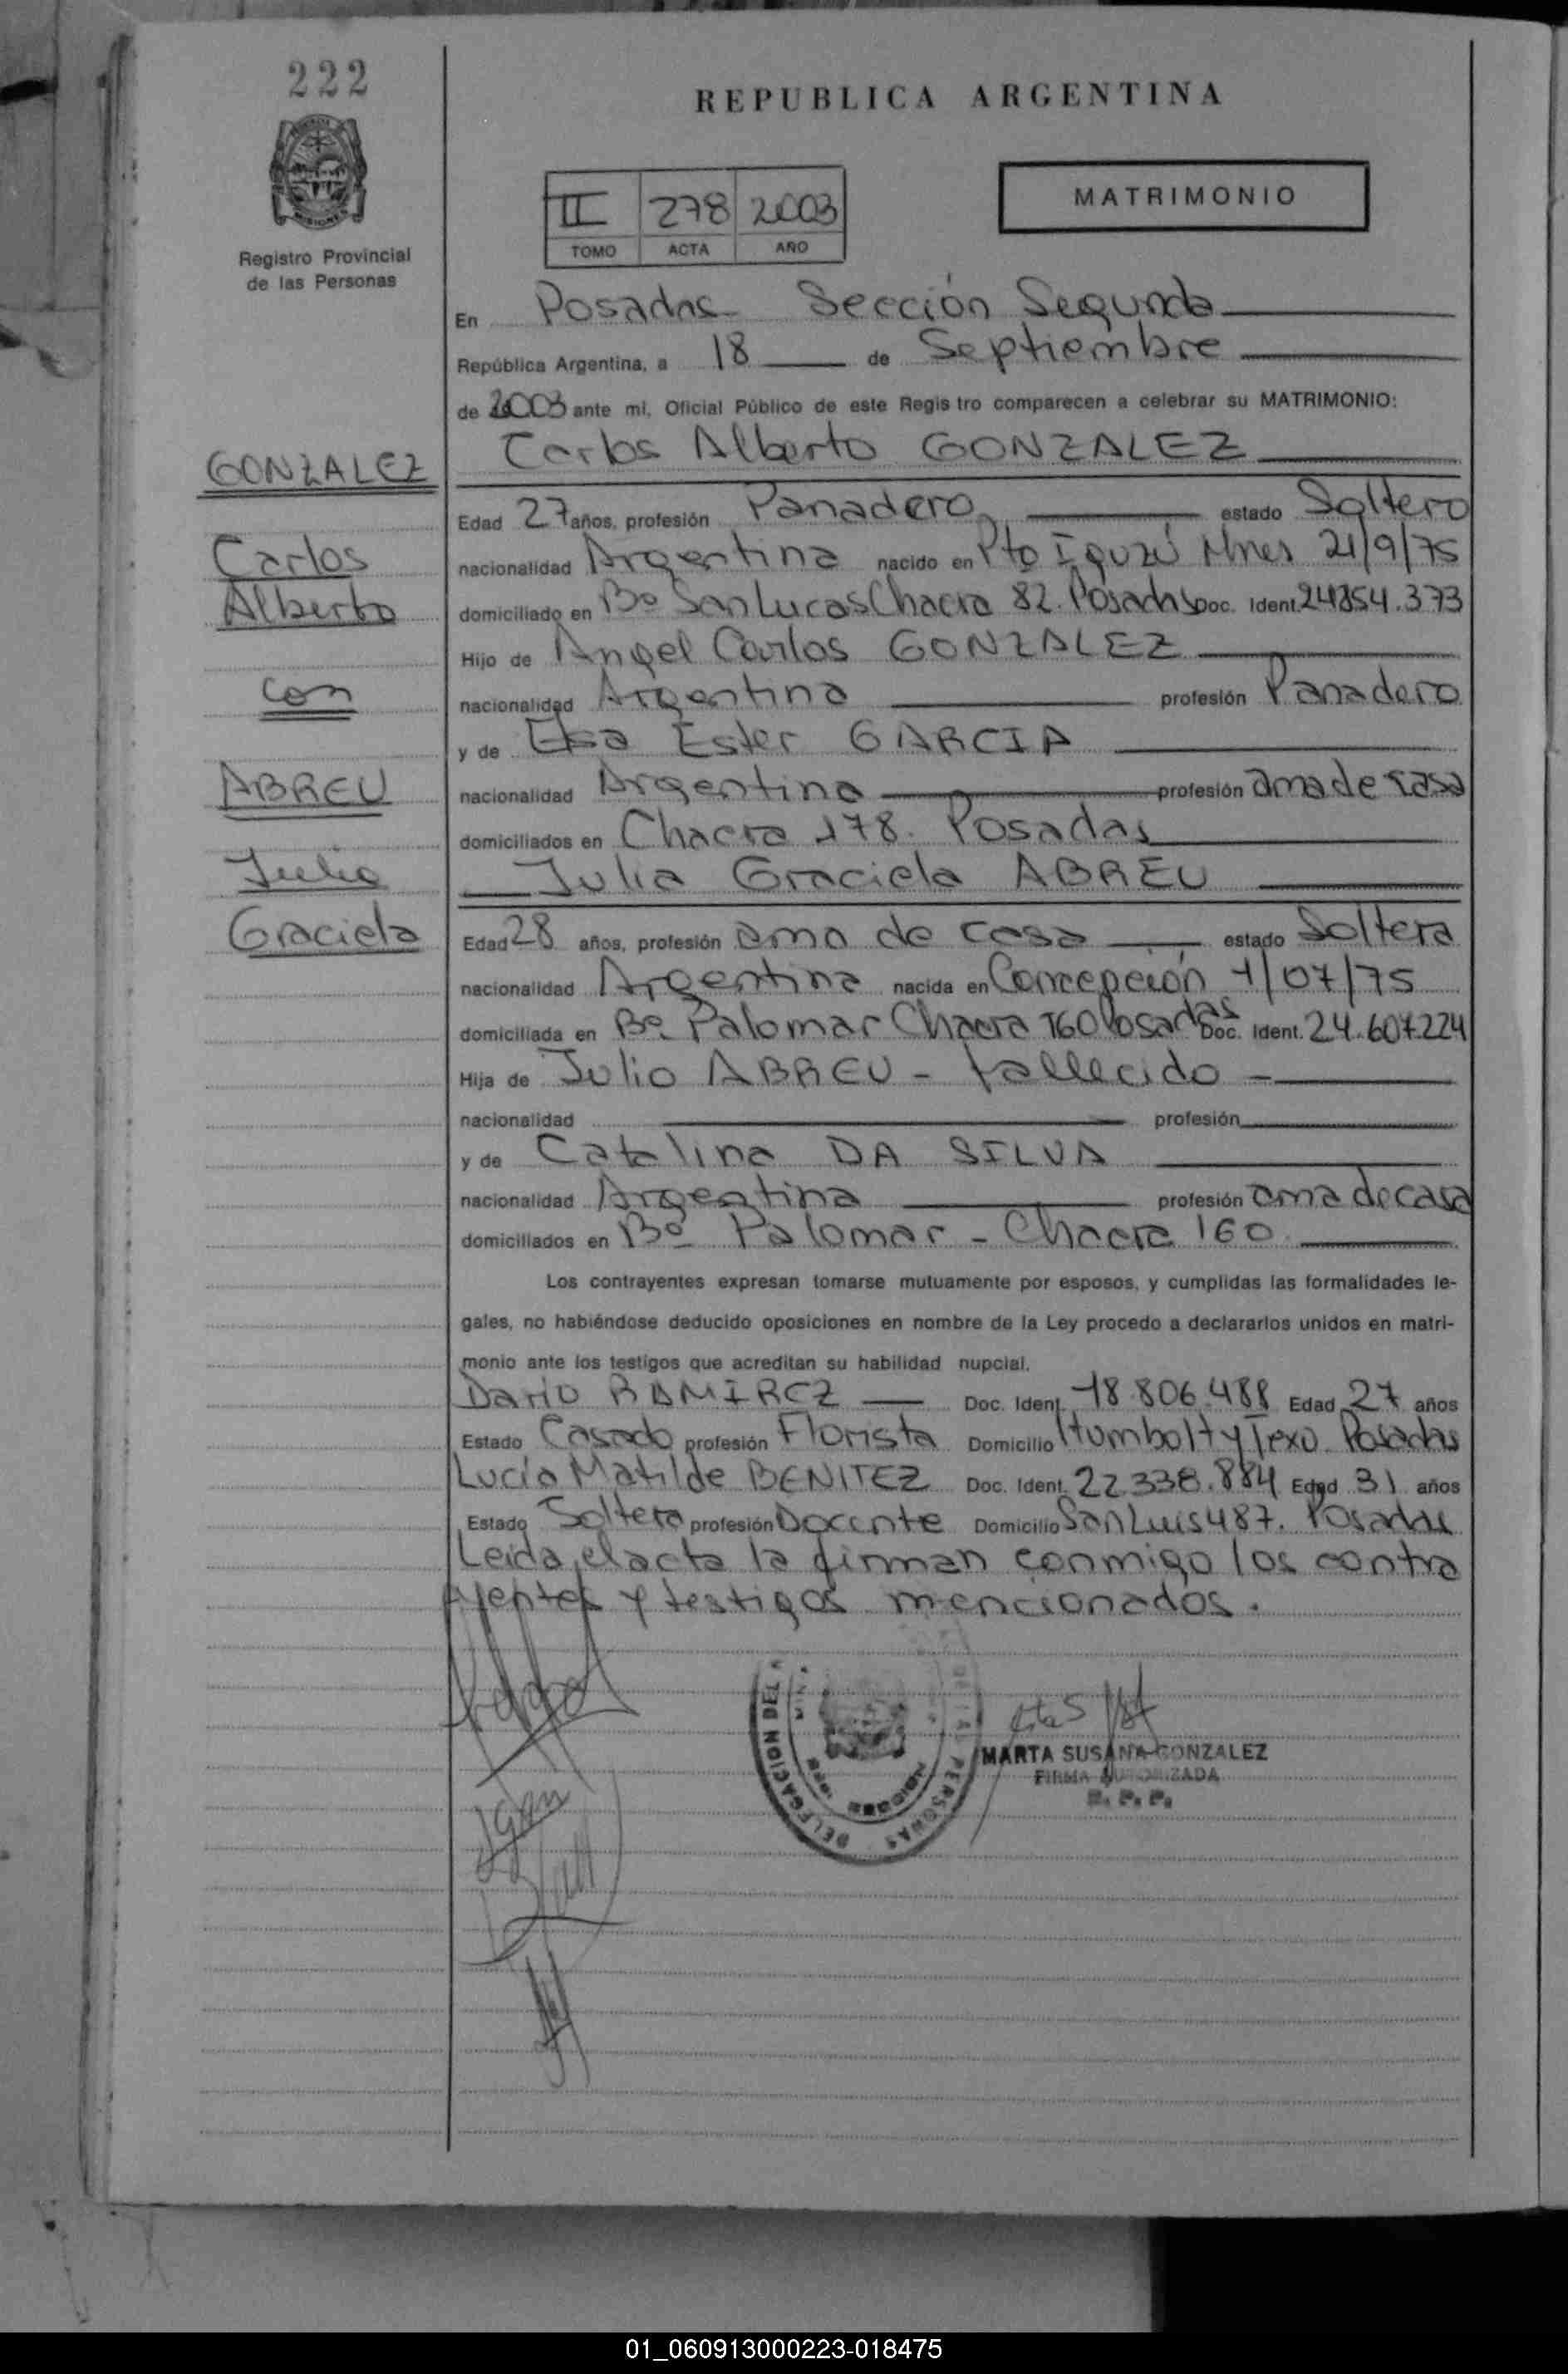 222
REPUBLICA ARGENTINA
Registro Provincial
de las Personas
II 278 2003
TOMO ACTA AÑO
MATRIMONIO
En Posadas - Sección Segunda
República Argentina, a 18 de Septiembre
de 2003 ante mi, Oficial Público de este Regis tro comparecen a celebrar su MATRIMONIO:
Carlos Alberto GONZALEZ
GONZALEZ
Carlos
Alberto
con
ABREU
Julia
Graciela
Edad 27 años, profesión Panadero estado Soltero
nacionalidad Argentina nacido en Pto Iguzú Mnes 21/9/75
domiciliado en Bº San Lucas Chacra 82. Posadas Doc. Ident. 24854.373
Hijo de Angel Carlos GONZALEZ
nacionalidad Argentina profesión Panadero
y de Elsa Ester GARCIA
nacionalidad Argentina profesión ama de casa
domiciliados en Chacra 178. Posadas
Julia Graciela ABREU
Edad 28 años, profesión ama de casa estado Soltera
nacionalidad Argentina nacida en Concepción 1/07/75
domiciliada en Bº Palomar Chacra 160 Posadas Doc. Ident. 24.607.224
Hija de Julio ABREU - fallecido -
nacionalidad profesión
y de Catalina DA SILVA
nacionalidad Argentina profesión ama de casa
domiciliados en Bº Palomar - Chacra 160
Los contrayentes expresan tomarse mutuamente por esposos, y cumplidas las formalidades le-
gales, no habiéndose deducido oposiciones en nombre de la Ley procedo a declararlos unidos en matri-
monio ante los testigos que acreditan su habilidad nupcial.
Dario RAMIREZ Doc. Ident. 18.806.488 Edad 27 años
Estado Casado profesión Florista Domicilio Humbolt y Posadas
Lucía Matilde BENITEZ Doc. Ident. 22.338.884 Edad 31 años
Estado Soltera profesión Docente Domicilio San Luis 487. Posadas
Leida el acta la firman conmigo los contra
yentes y testigos mencionados.
DELEGACION DEL PERSONAS
MARTA SUSANA GONZALEZ
FIRMA AUTORIZADA
R. P. P.
01_060913000223-018475